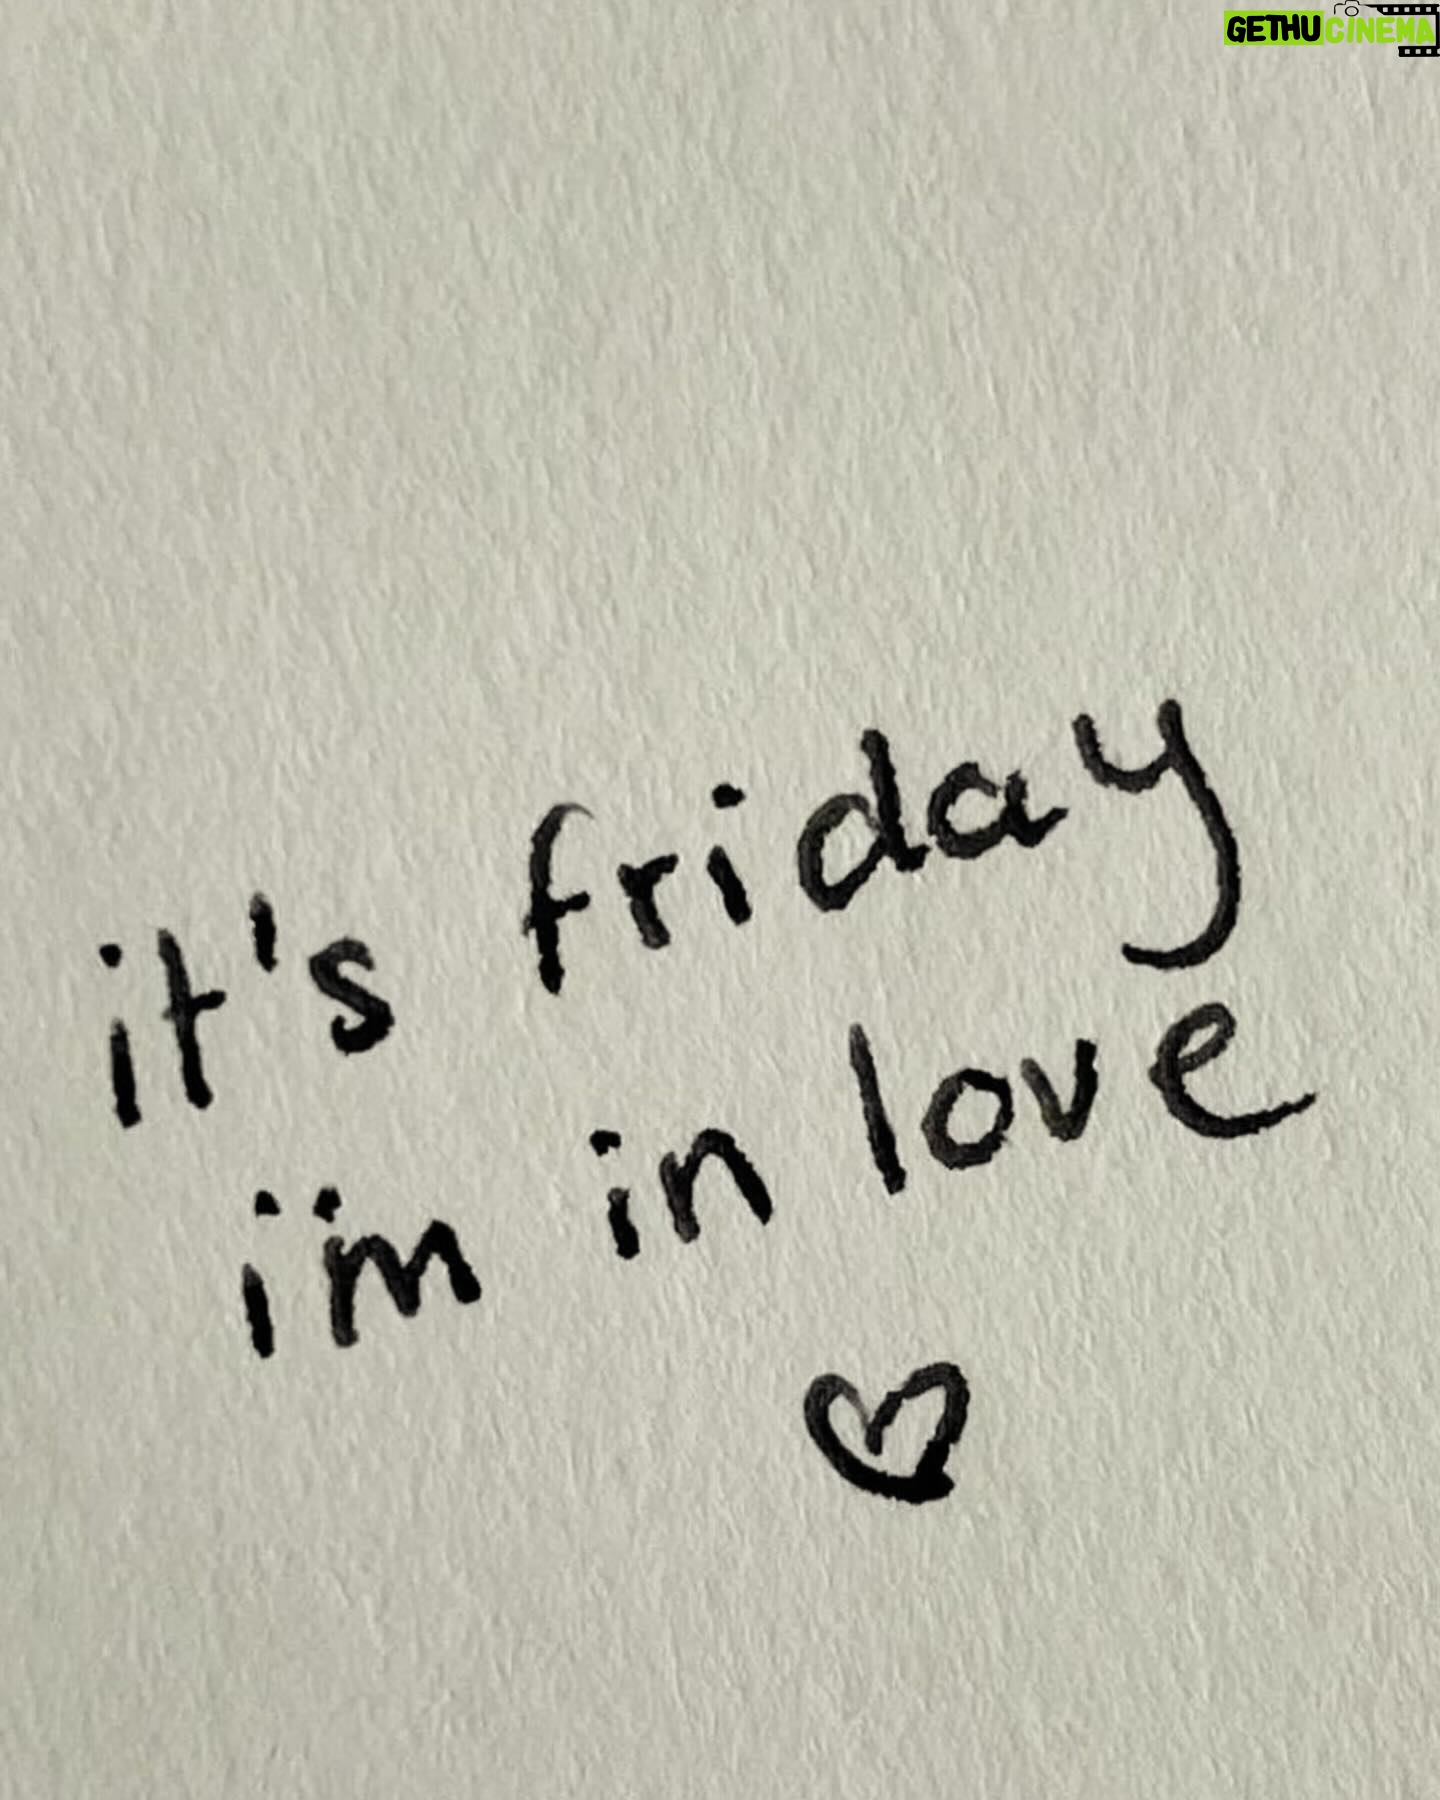 GETHUCINEMA
it's friday
i'm in love